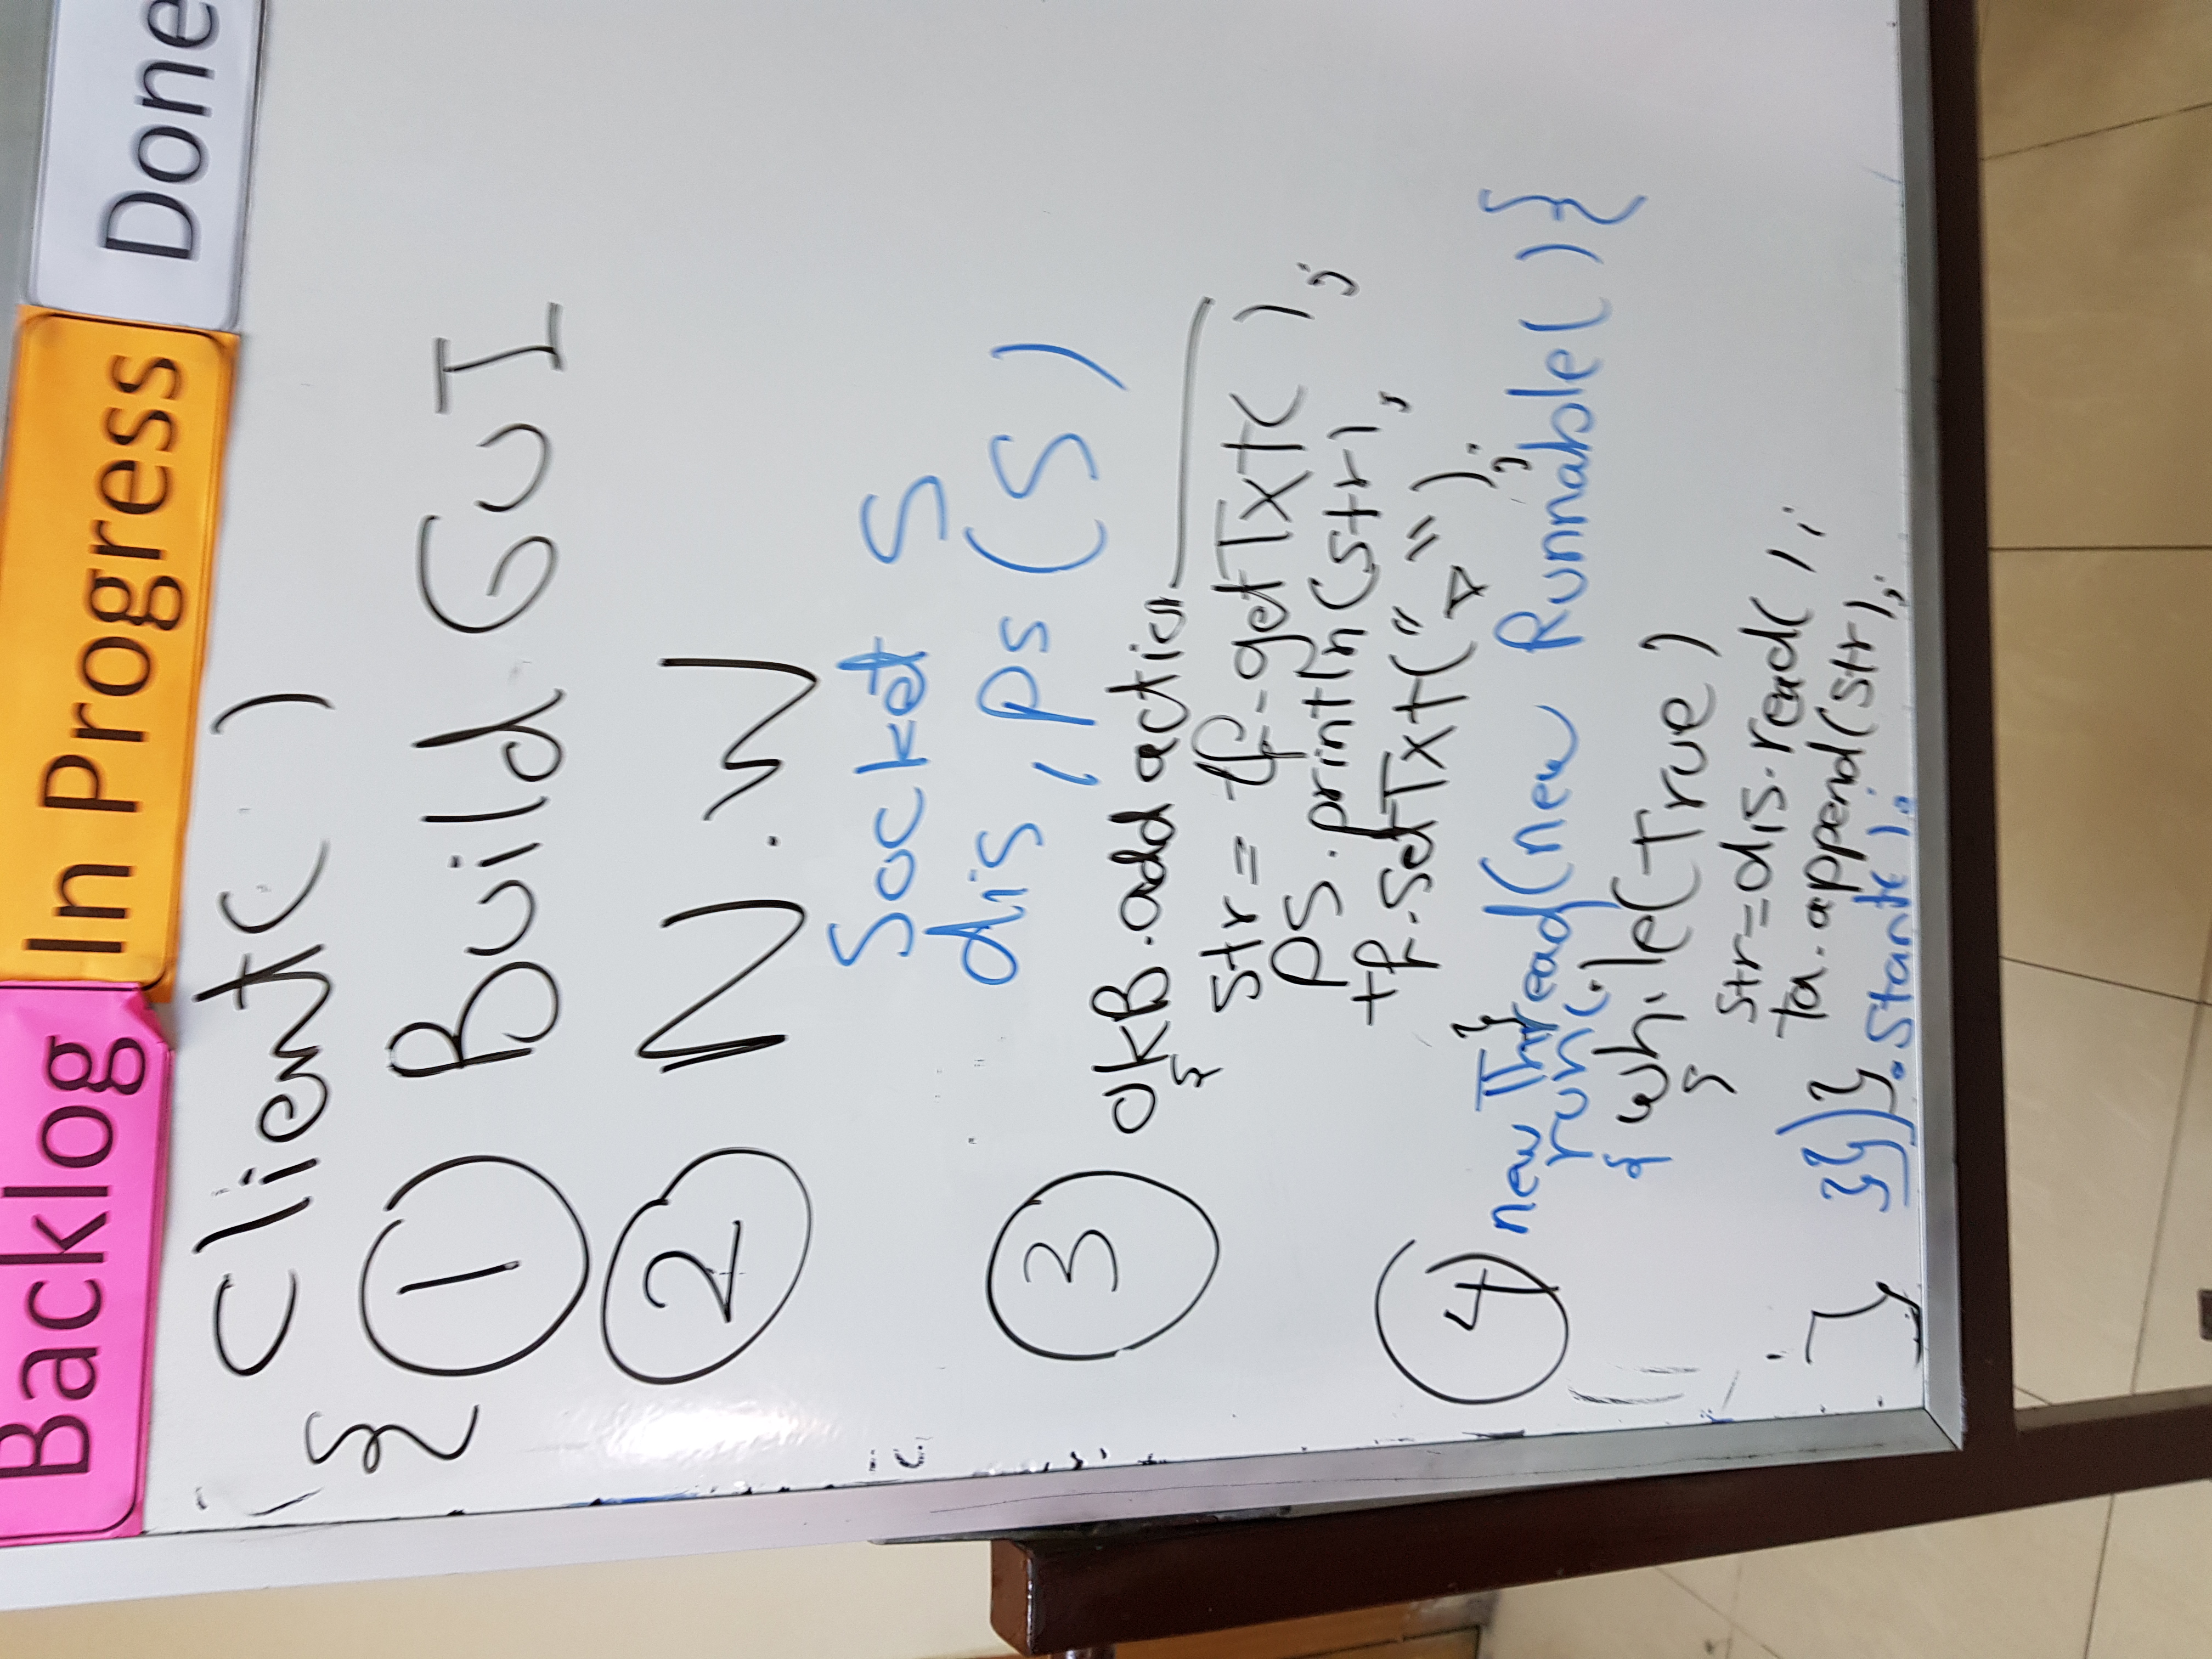 Backlog In Progress Done
Client( )
{
1 Build GUI
2 N.W
Socket S
dis, ps (S)
3
okB.add action
{
str = tf.getTxt( );
ps.println(str);
tf.setTxt(" ");
}
4 new Thread(new Runnable(){
run()
{ while(true)
{
str=dis.read( );
ta.append(str);
} }})}.start( );